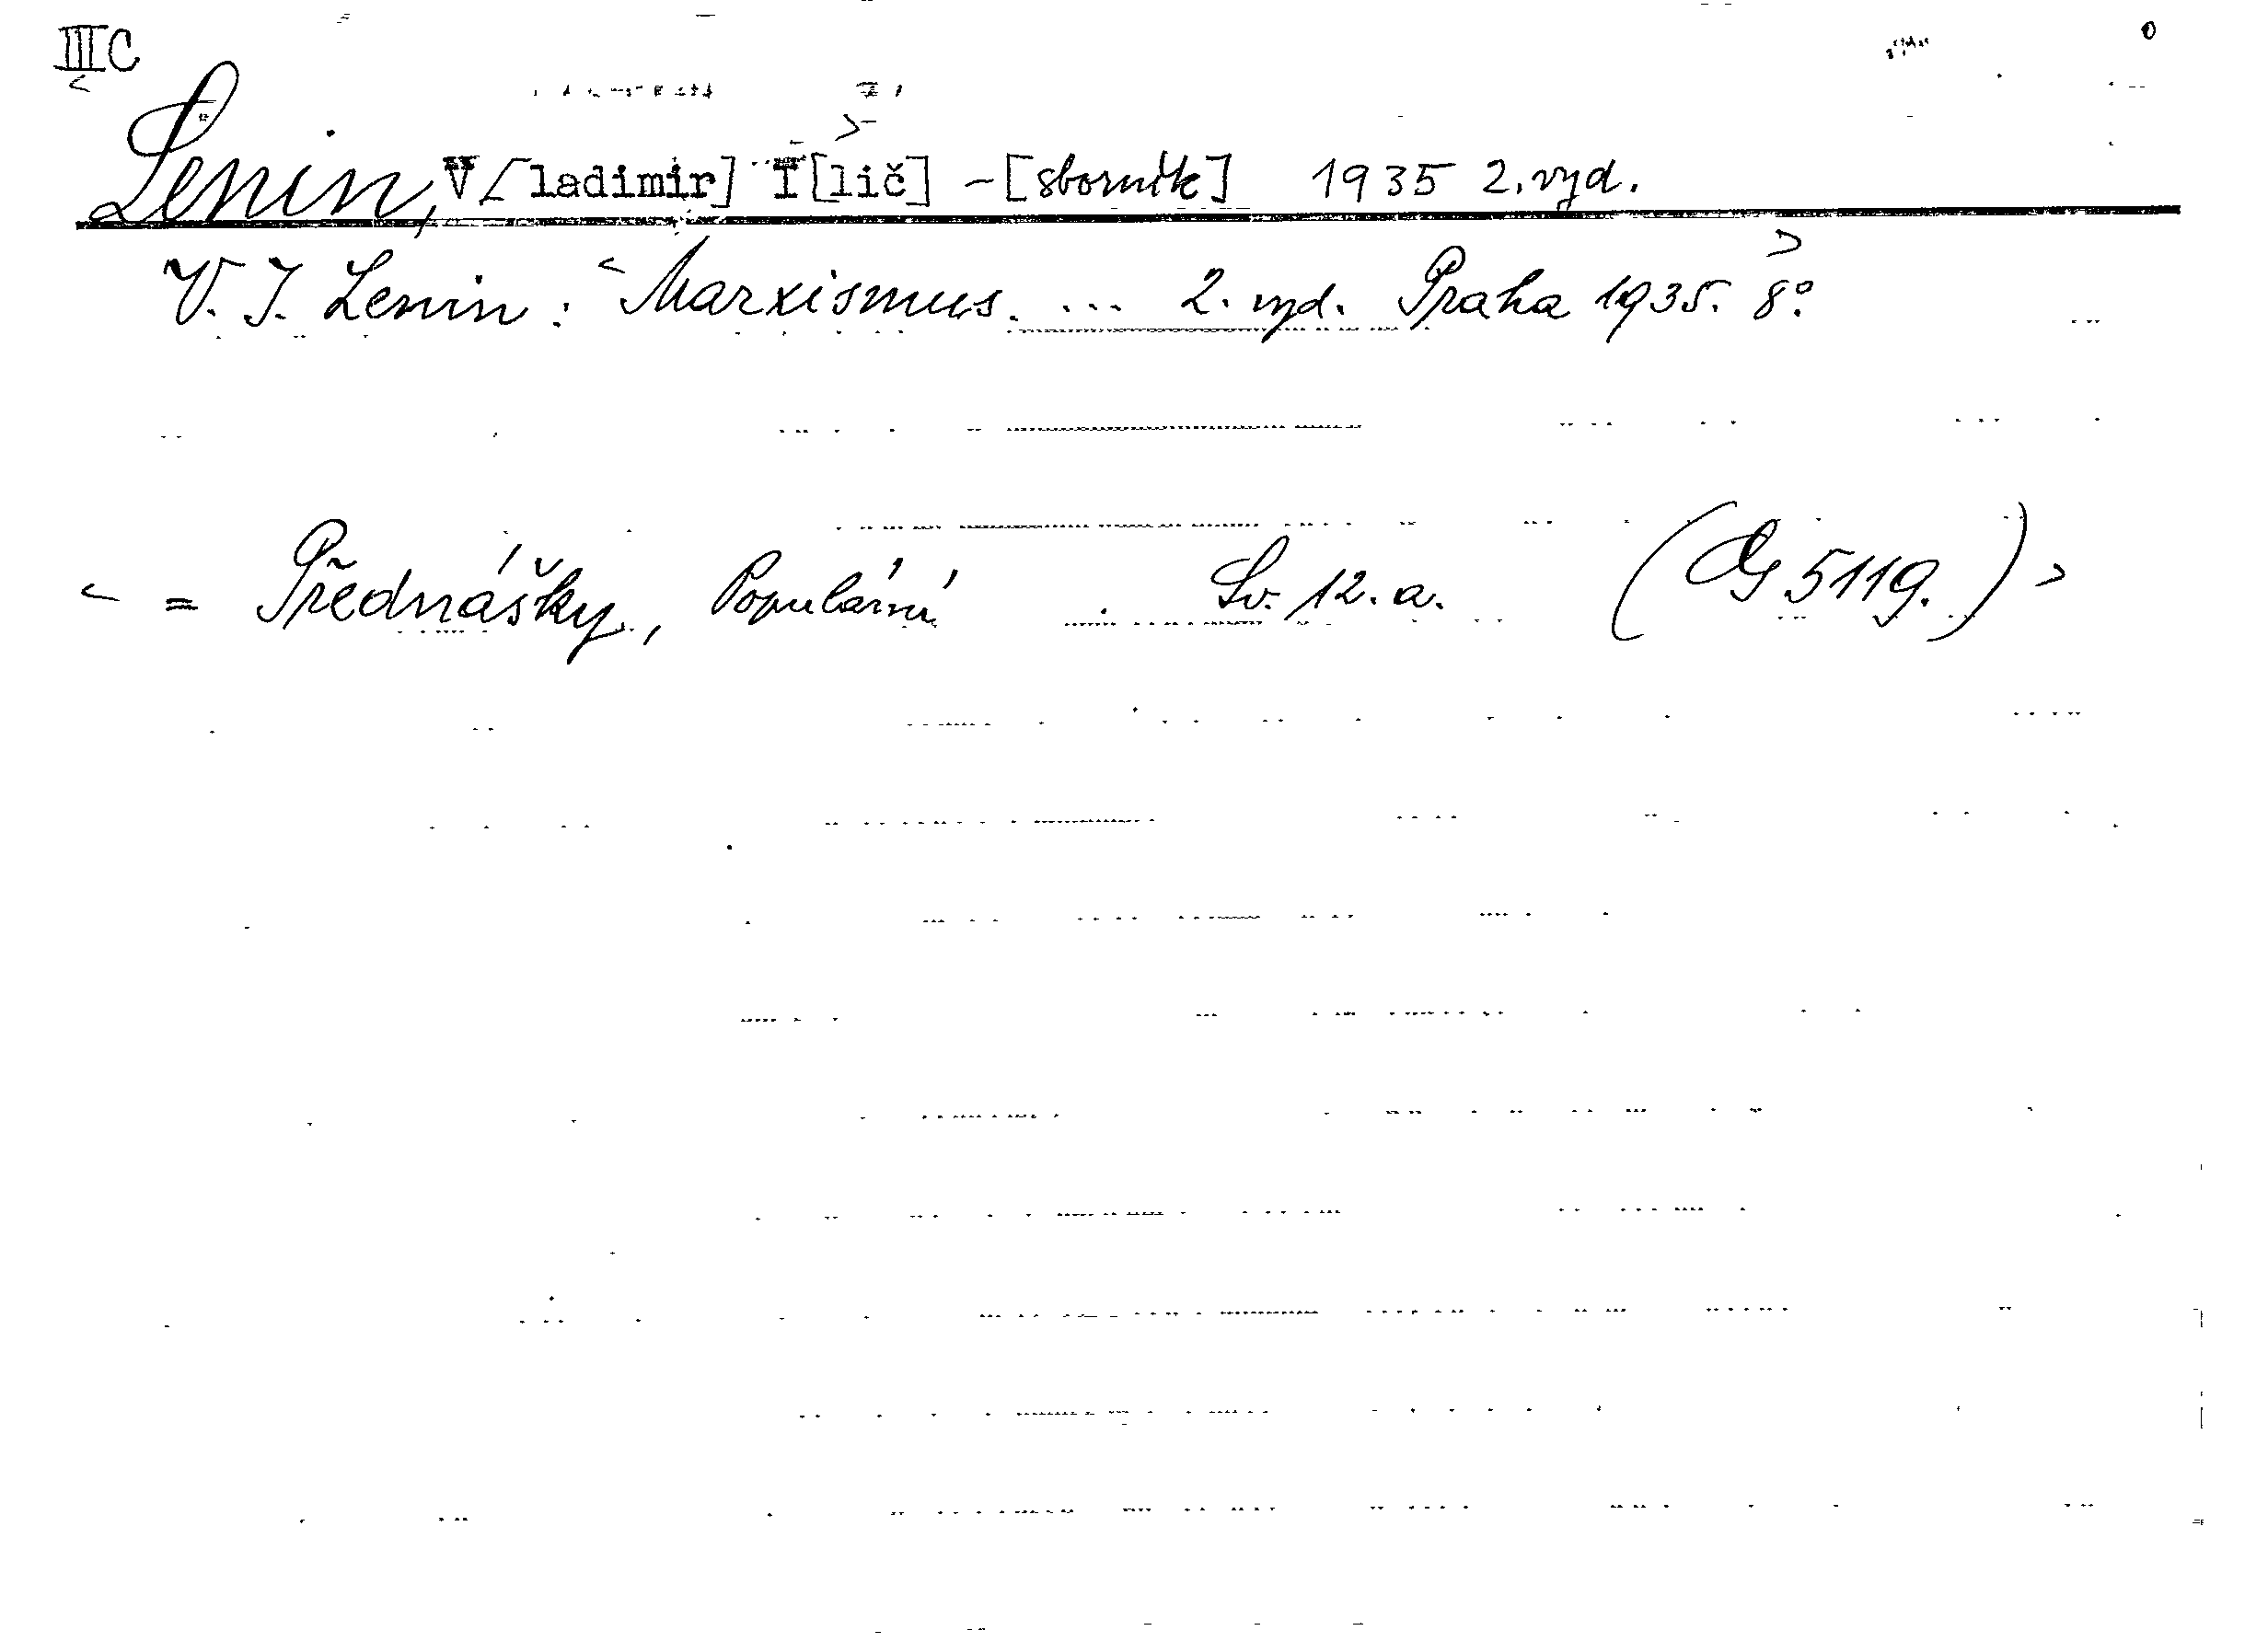 IIIC
Lenin, V[ladimir] I[lič] - [sborník] 1935 2. vyd.
V. I. Lenin: Marxismus. ... 2. vyd. Praha 1935. 8°.
= Přednášky, Populární . Sv. 12. a. ( 5119.)